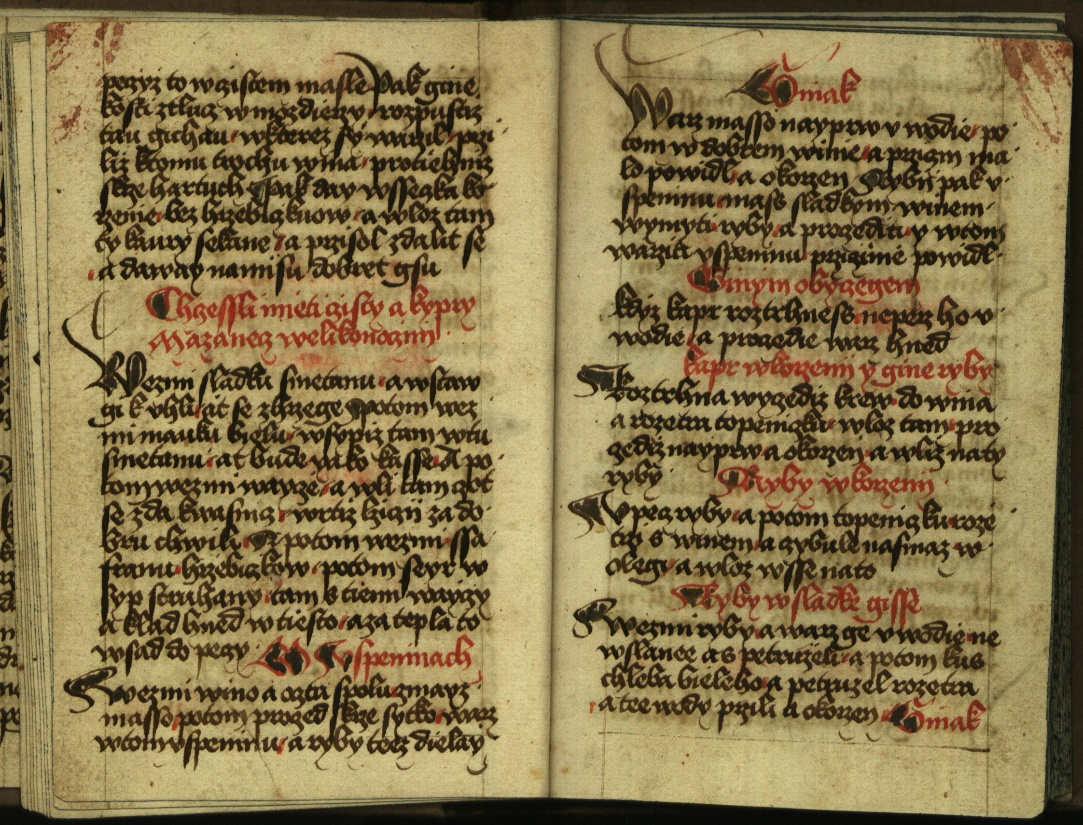 peczyz to w czistem masle Pak gine
kosti ztluc w mozdierzy rozpustiz
tau gichau w kterez sy warzil przi
liz ktomu trochu wina protiehniz
skze hartuch Pak day wsseczka ko
rzenie bez hrzebiczkuow a wloz tam
ty kaury sekane a przisol zdalit se
a daway na misu dobret gsu
Chczessli mieti czisty a kypry
Mazanecz welikonoczni
Wezmi sladku smetanu a wstaw
gi k uhli at se zhrzege potom wez
mi mauku bielu wsypiz tam w tu
smetanu at bude yako kasse A po
tom wezmi wayce a wli tam zot
se zda kwasnic wrtiz lzicy za do
bru chwili A potom wezmi ssa
franu hrzebiczkow potom seyr w
syp struhany tam s tiemi wayczy
a klad hned w tiesto a za tepla to
wsad do peczy O Uspeninach
Wezmi wino a oczta spolu zmaycz
masso potom proczed skze sytko warz
w tom uspeninu a ryby teez dielay
Ginak
Warz masso nayprw u wodie po
tom w dobrem winie a przicin ma
lo powidl a okorzen Rybni pak u
speninu mass sladkym winem
wymyti ryby a proczediti y w tom
warziti uspeninu prziczinie powidl
Ginym obyczegem
kdyz kapr roztrhness neperz ho u
wodie a proczedie warz hned
kapr w korzeni y gine ryby
Roztrhna wycediz krew do wina
a rozetra topeniczku wloz tam pro
cediz nayprw a okorzen a wliz na ty
ryby Ryby w korzeni
Upecz ryby a potom topeniczku roze
trzi s winem a cybule nasmaz w
olegi a wloz wsse na to
Ryby w sladke gisse
wezmi ryby a warz ge u wodie ne
w slanee a s petruzeli a potom kus
chleba bieleho a petruzel rozetra
a tee wody przili a okorzen Ginak